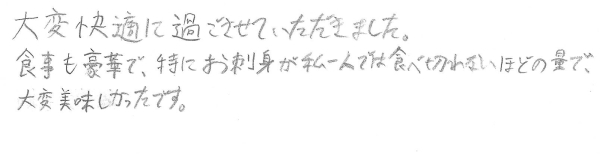 大変快適に過ごさせていただきました。
食事も豪華で、特にお刺身が私一人では食べ切れないほどの量で、
大変美味しかったです。